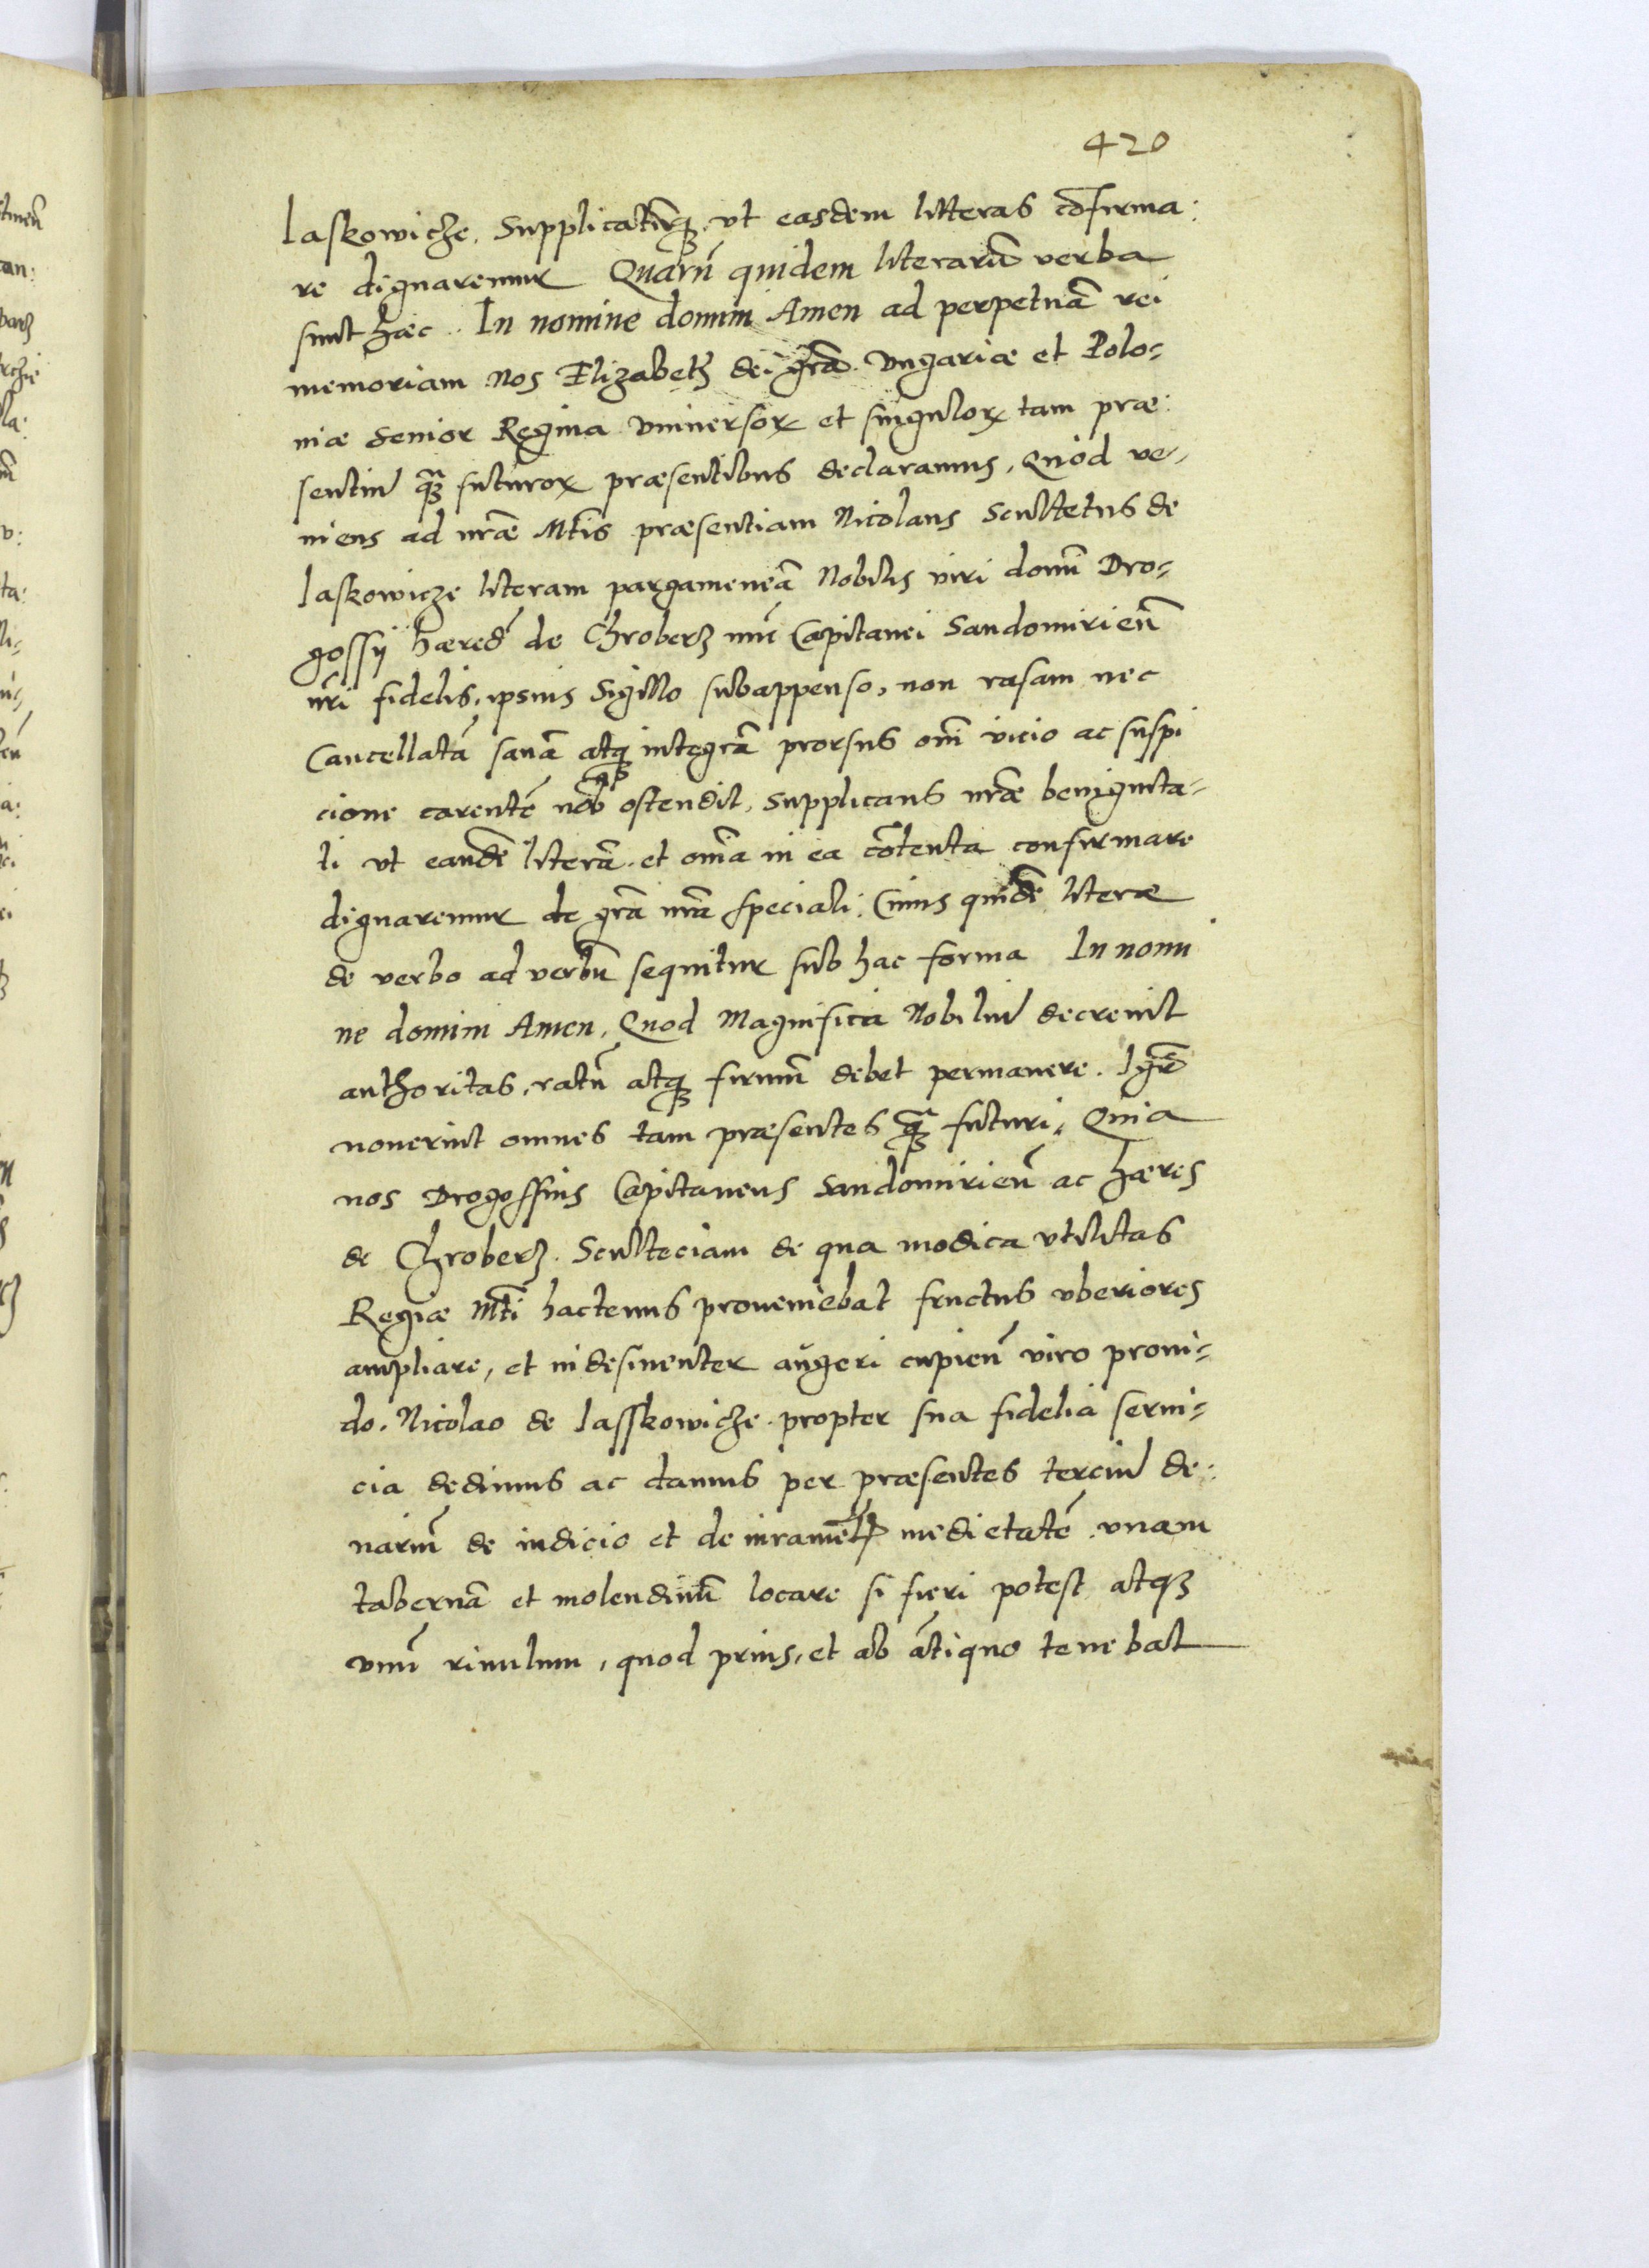 420
laskowicze, Supplicatūq̄ʒ vt easdem litteras cōfirma:
re dignaremur Quarū quidem literarū verba
sunt hæc. In nomine domini Amen ad perpetuā rei
memoriam Nos Elizabeth dei grā. Vngariæ et Polo-
niæ Senior Regina Vniuersoꝝ et singuloꝝ tam præ:
sentiū qʒ̄ futuroꝝ præsentibus declaramus, Quod ve-
niens ad nrāe Mtis præsentiam Nicolaus Scultetus de
laskowicze literam pargameneā Nobilis viri domī Dro-
gossÿ hæred̄ de Chroberʒ nūc Capitanei Sandomirien̄
nr̄i fidelis, ipsius Sigillo subappenso, non rasam nec
Cancellatā sanā atqʒ integrā prorsus om̄i vicio ac suspi
cione carentē nob ostendit, supplicans nrāe benignita-
ti vt eandē literā et om̄ia in ea cōtenta confirmare
dignaremur de grā nrā speciali: Cuius quidē literæ
de verbo ad verbū sequitur sub hac forma In nomi
ne domini Amen, Quod Magnifica Nobiliū decreuit
authoritas, ratū atqʒ firmū debet permanere. Igr̄
nouerint omnes tam præsentes qʒ̄ futuri, Quia
nos Drogossius Capitaneus Sandomirien̄ ac hæres
de Chroberʒ. Sculteciam de qua modica vtilitas
Regiæ Mti hactenus proueniebat fructus vberiores
ampliare, et indesinenter augeri cupien̄ viro proui-
do. Nicolao de lasskowicze propter sua fidelia serui-
cia dedimus ac damus per præsentes terciū de:
nariū de iudicio et de iuramētꝭ medietatē vnam
tabernā et molendinū locare si fieri potest atqʒ
vnū riuulum, quod prius, et ab ātiquo tenebat